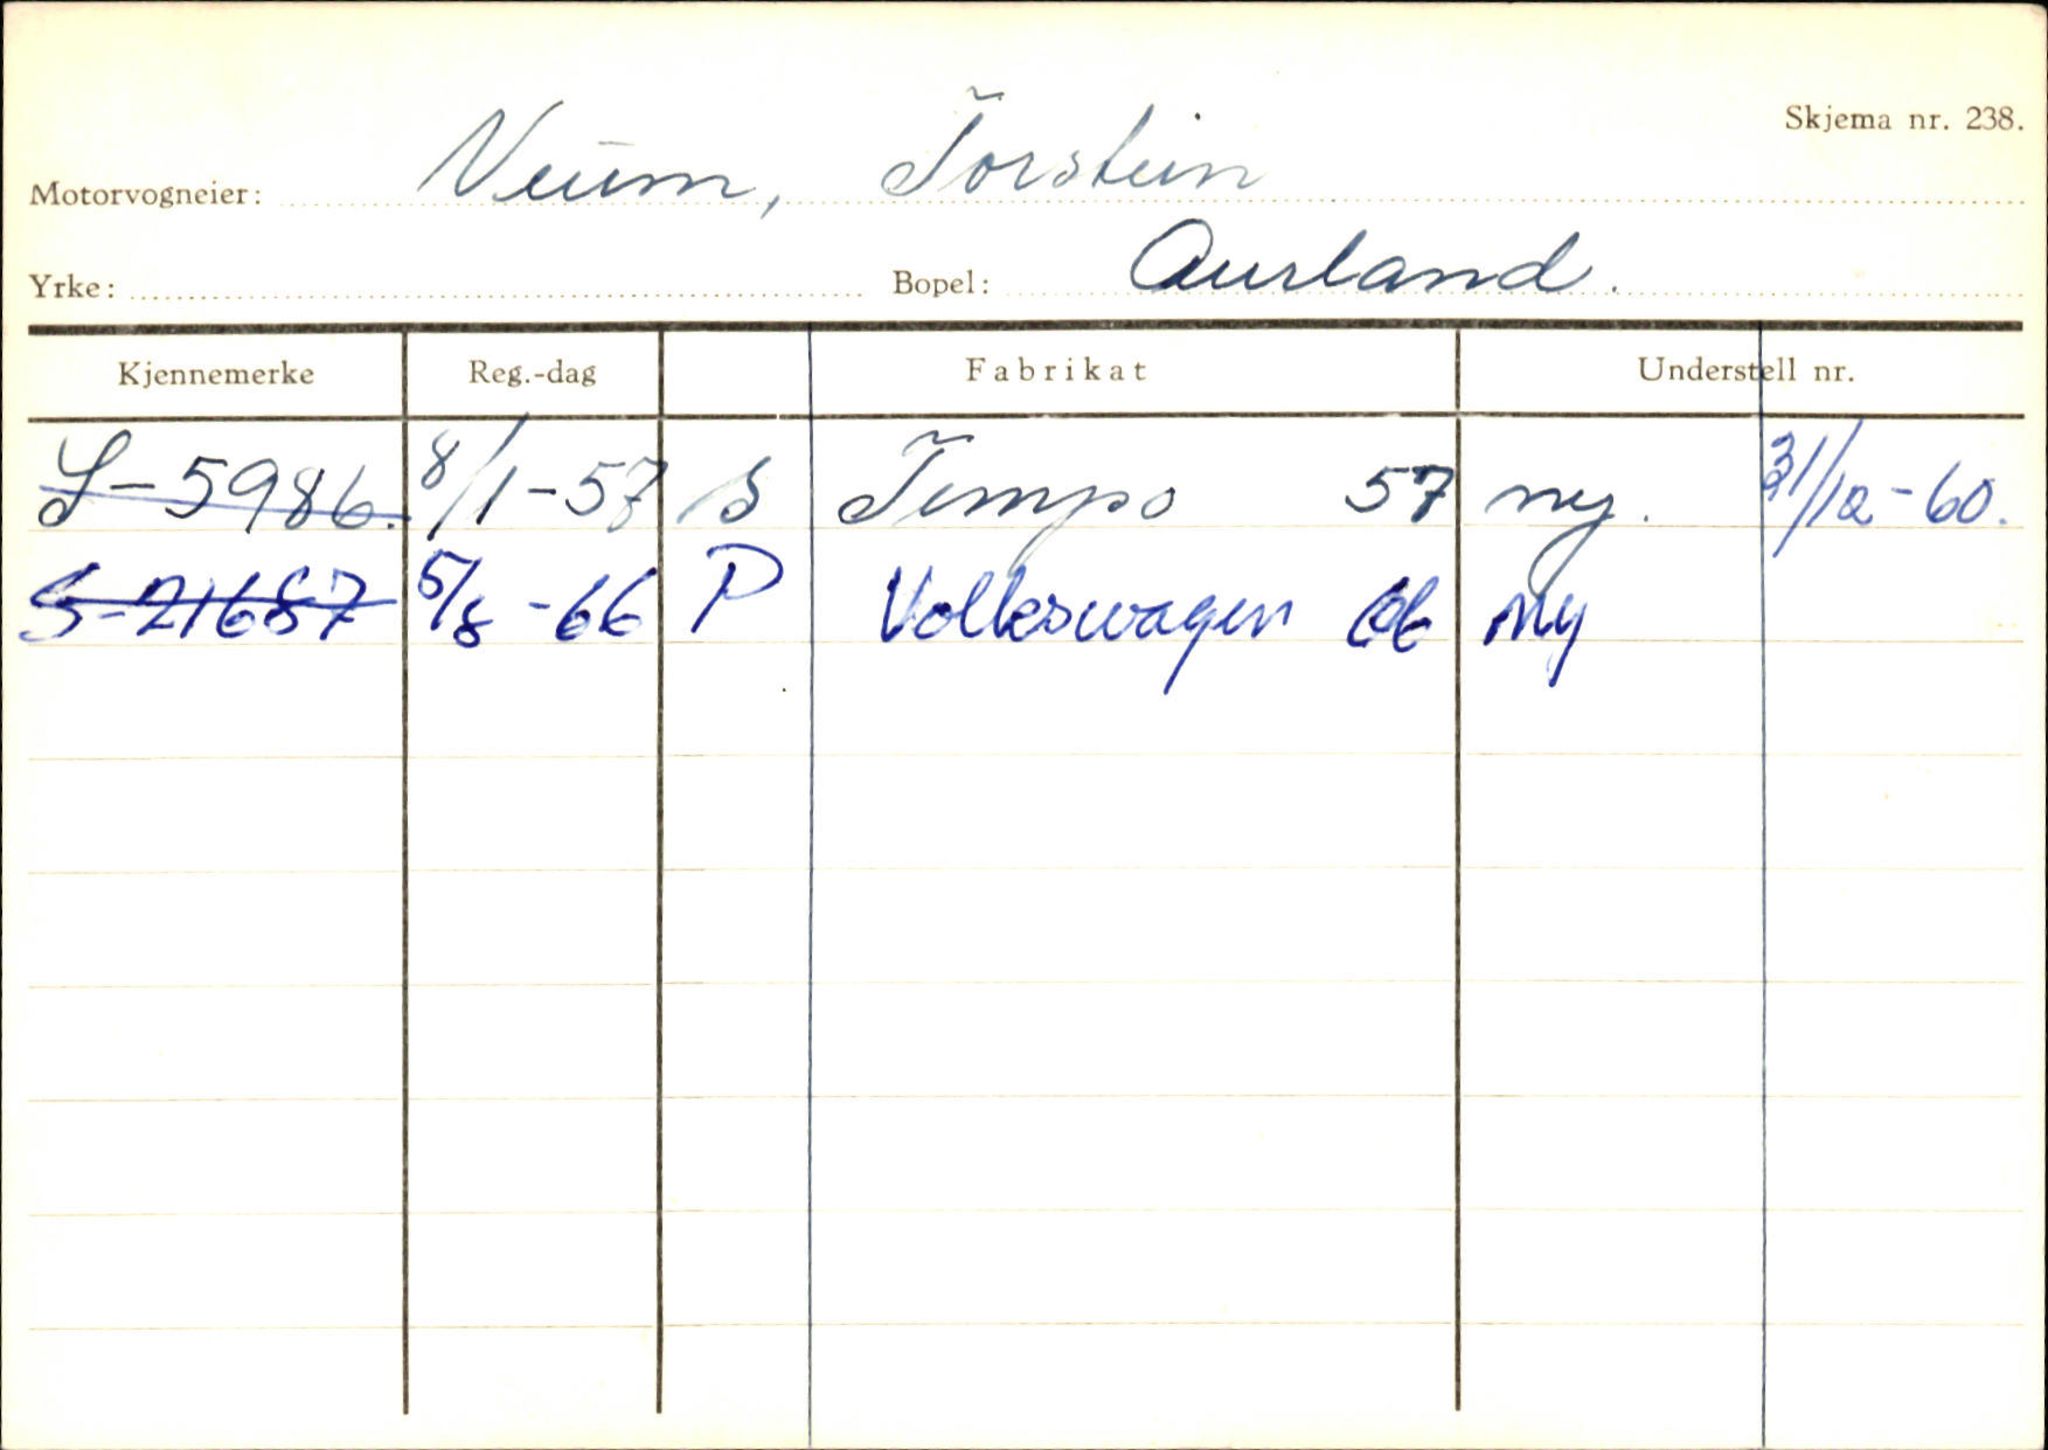 Skjema nr. 238.
Motorvogneier: Neum, Torstein
Yrke: Bopel: Aurland.
Kjennemerke Reg.-dag Fabrikat Understell nr.
S-5986. 8/1-57 S Tempo 57 ny. 31/12-60.
S-21687 5/8-66 P Volkswagen 66 Ny